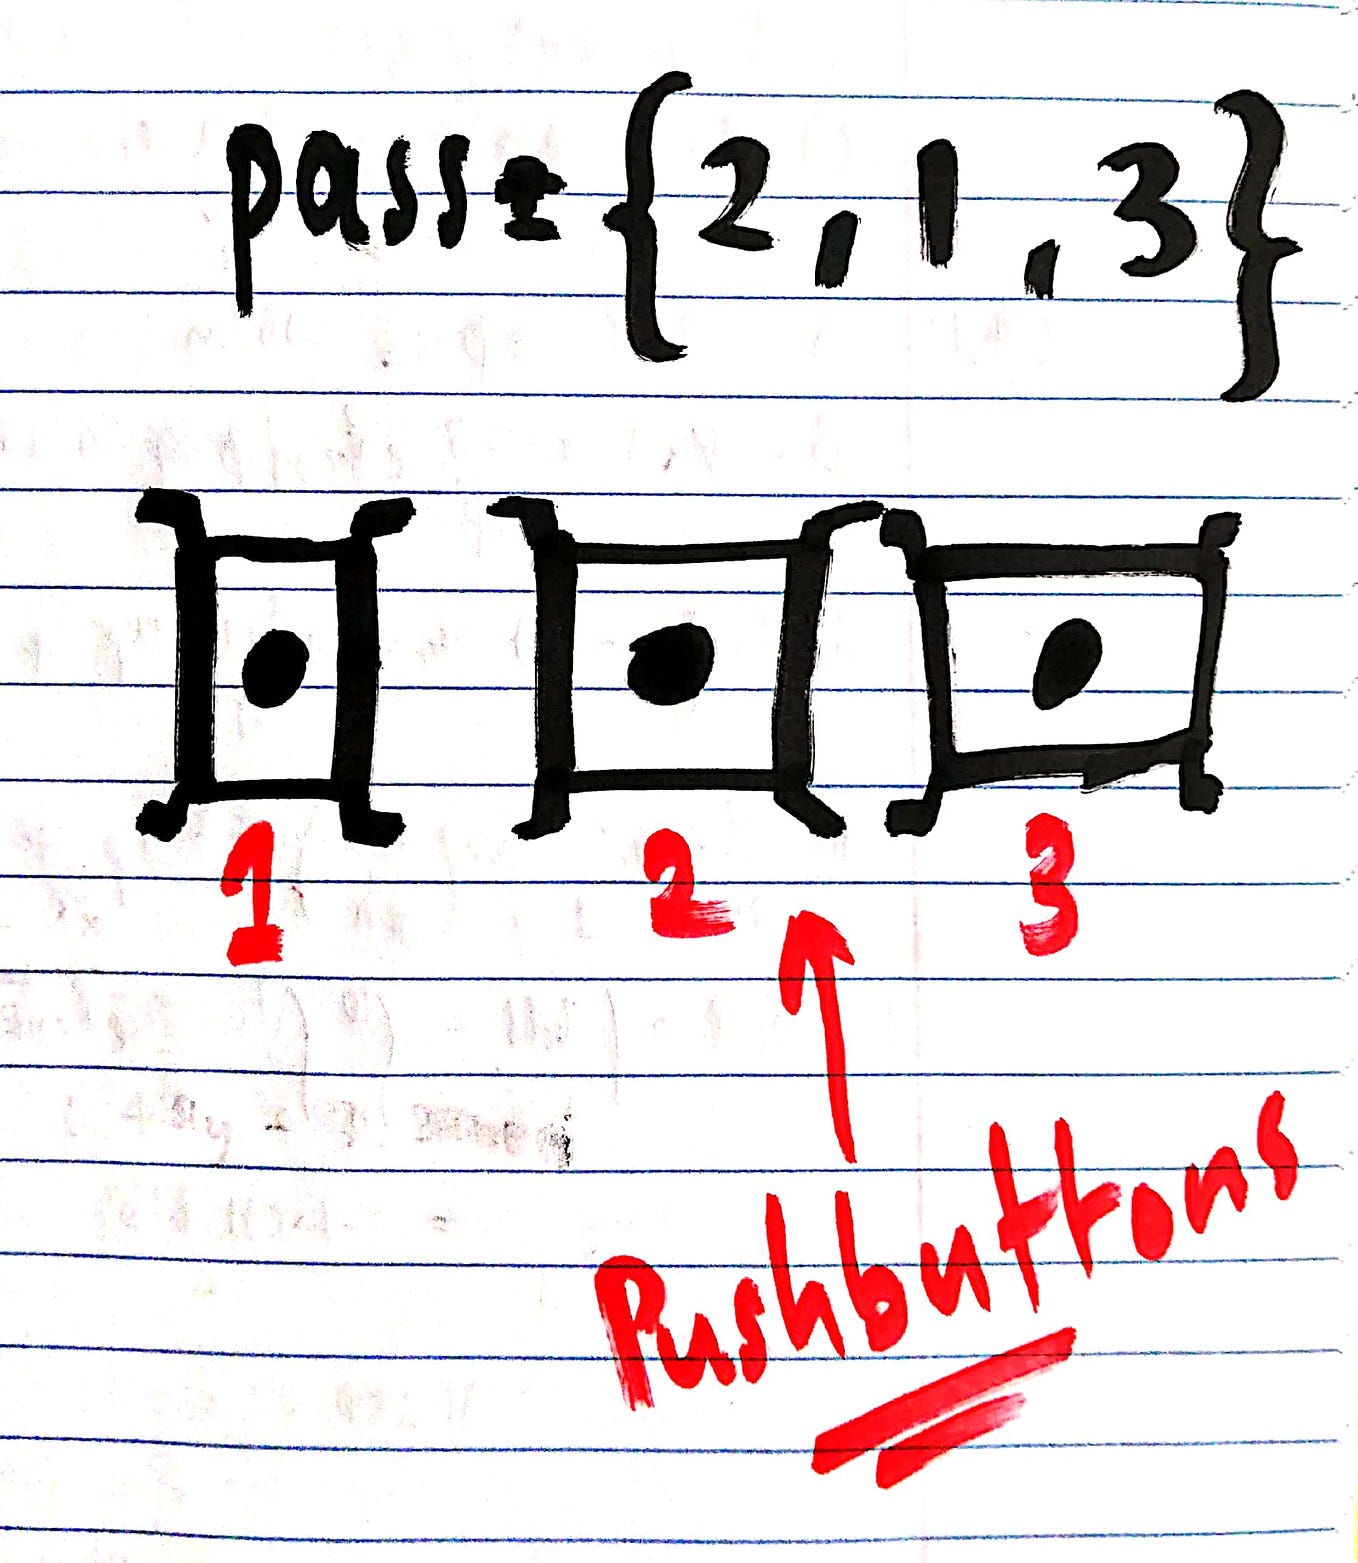 pass={2,1,3}
1 2 3
Pushbuttons